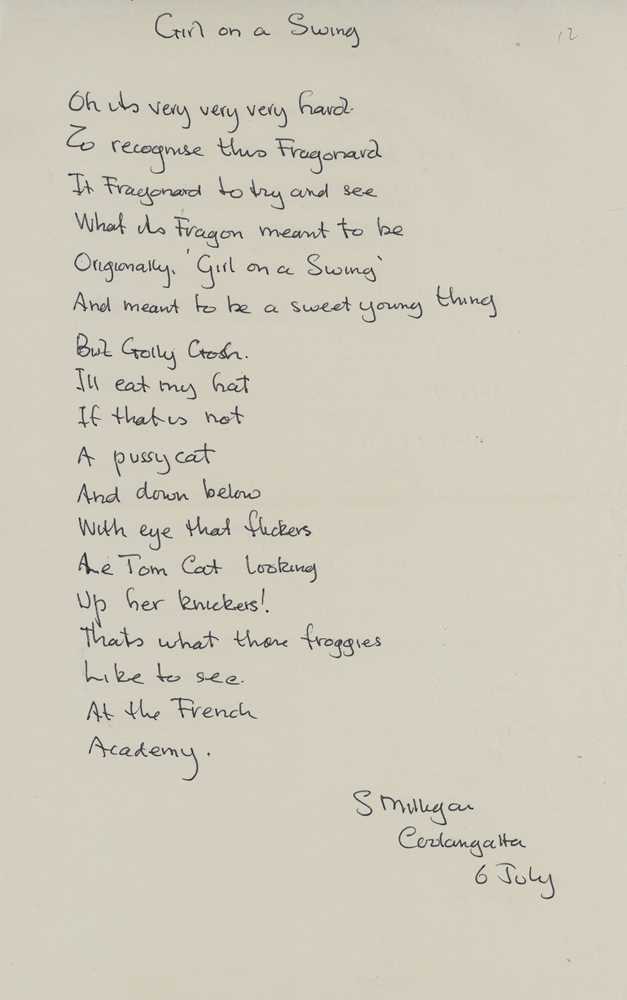 Girl on a Swing
12
Oh its very very very hard.
To recognise this Fragonard
It Fragonard to try and see
What its Fragon meant to be
Origionally. 'Girl on a Swing'
And meant to be a sweet young thing
But Golly Gosh.
Ill eat my hat
If that is not
A pussy cat
And down below
With eye that flickers
Le Tom Cat looking
Up her knickers!
Thats what those froggies
Like to see.
At the French
Academy.
S Milligan
Coolangatta
6 July